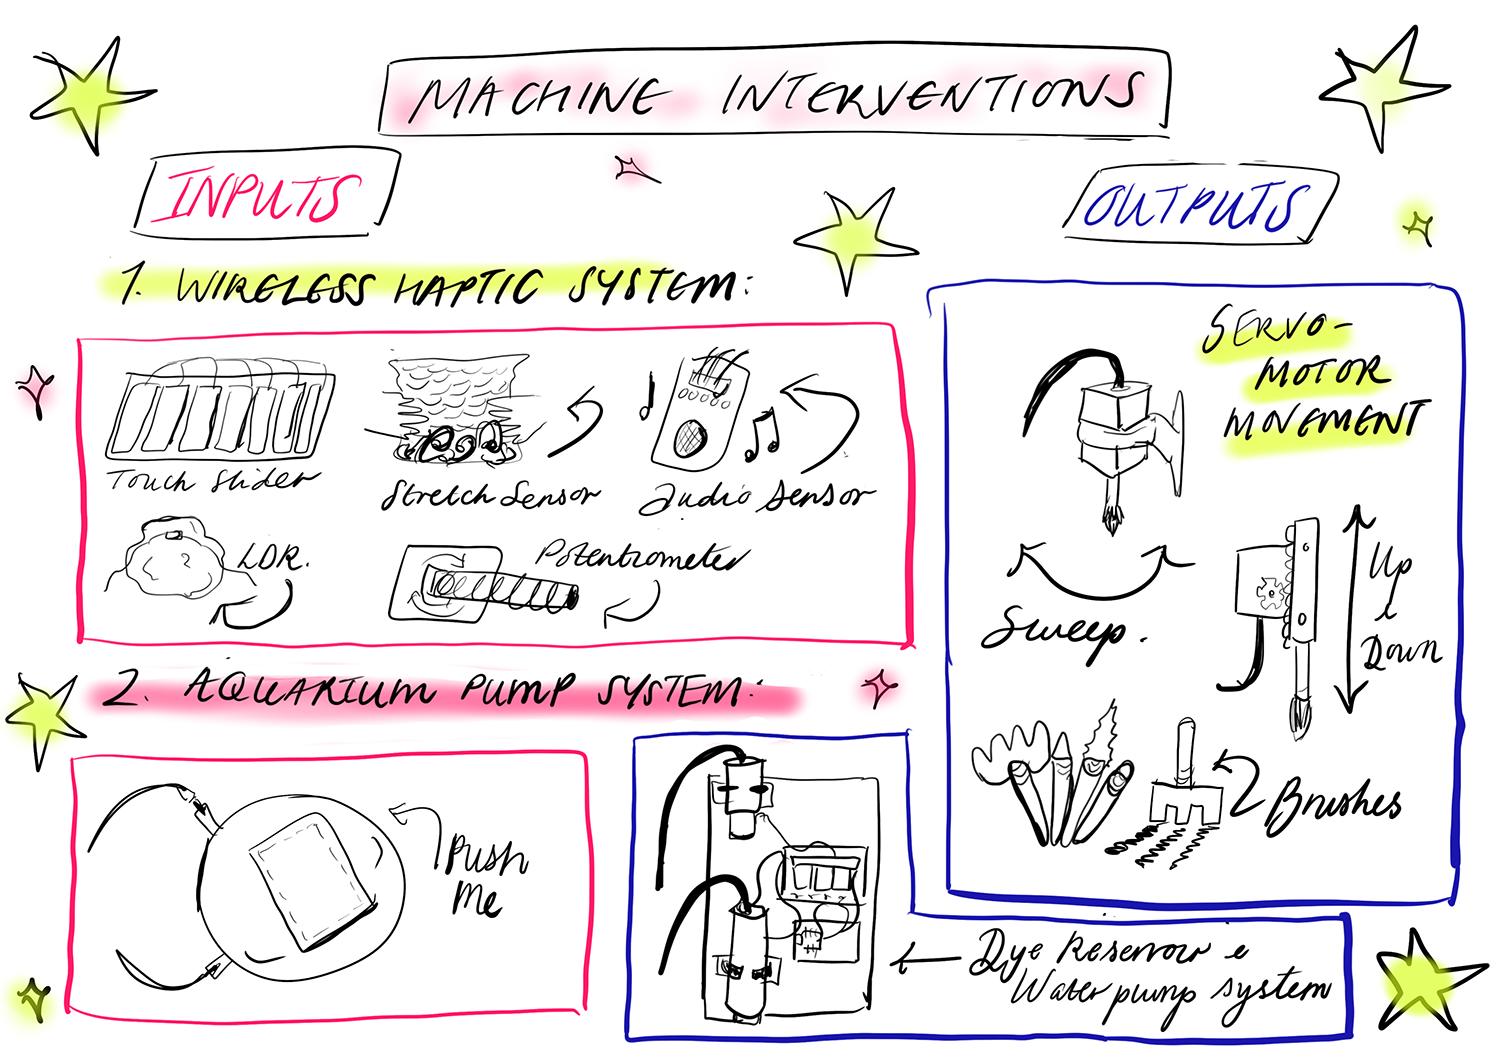 MACHINE INTERVENTIONS
INPUTS
1. WIRELESS HAPTIC SYSTEM:
Touch Slider
Stretch Sensor
Audio Sensor
LDR.
Potentiometer
2. AQUARIUM PUMP SYSTEM:
Push
Me
OUTPUTS
SERVO-
MOTOR
MOVEMENT
Sweep.
Up
&
Down
Brushes
Dye Reservoir &
Water pump system